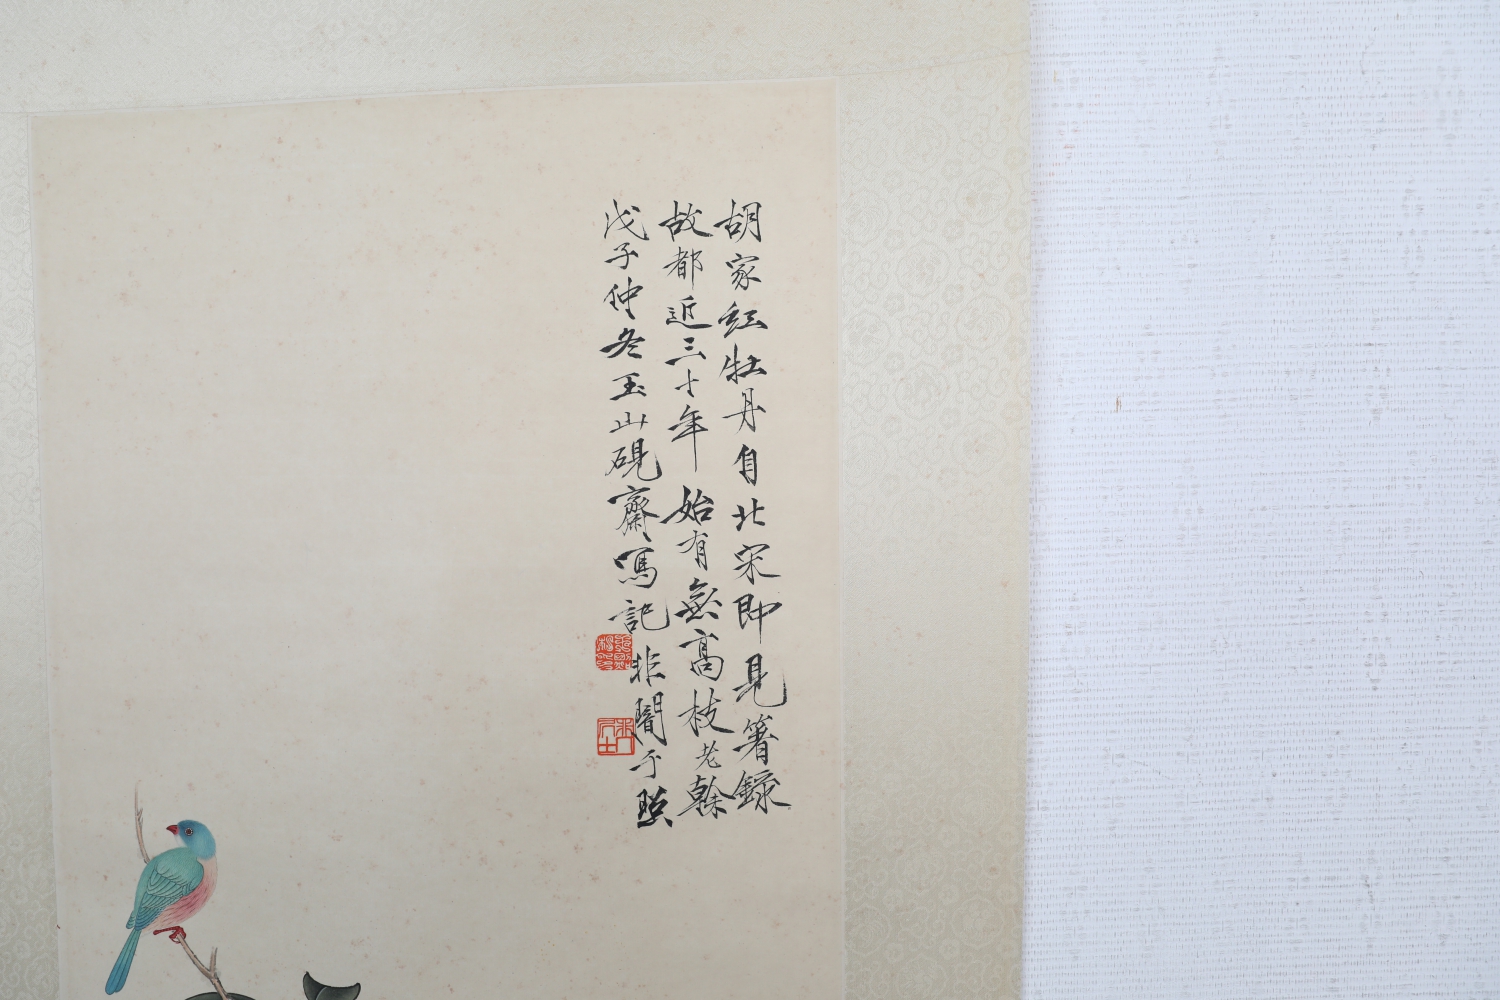 胡家紅牡丹自北宋即見箸錄
故都近三十年始有無高枝老榦
戊子仲冬玉山硯齋寫記
非闇于照